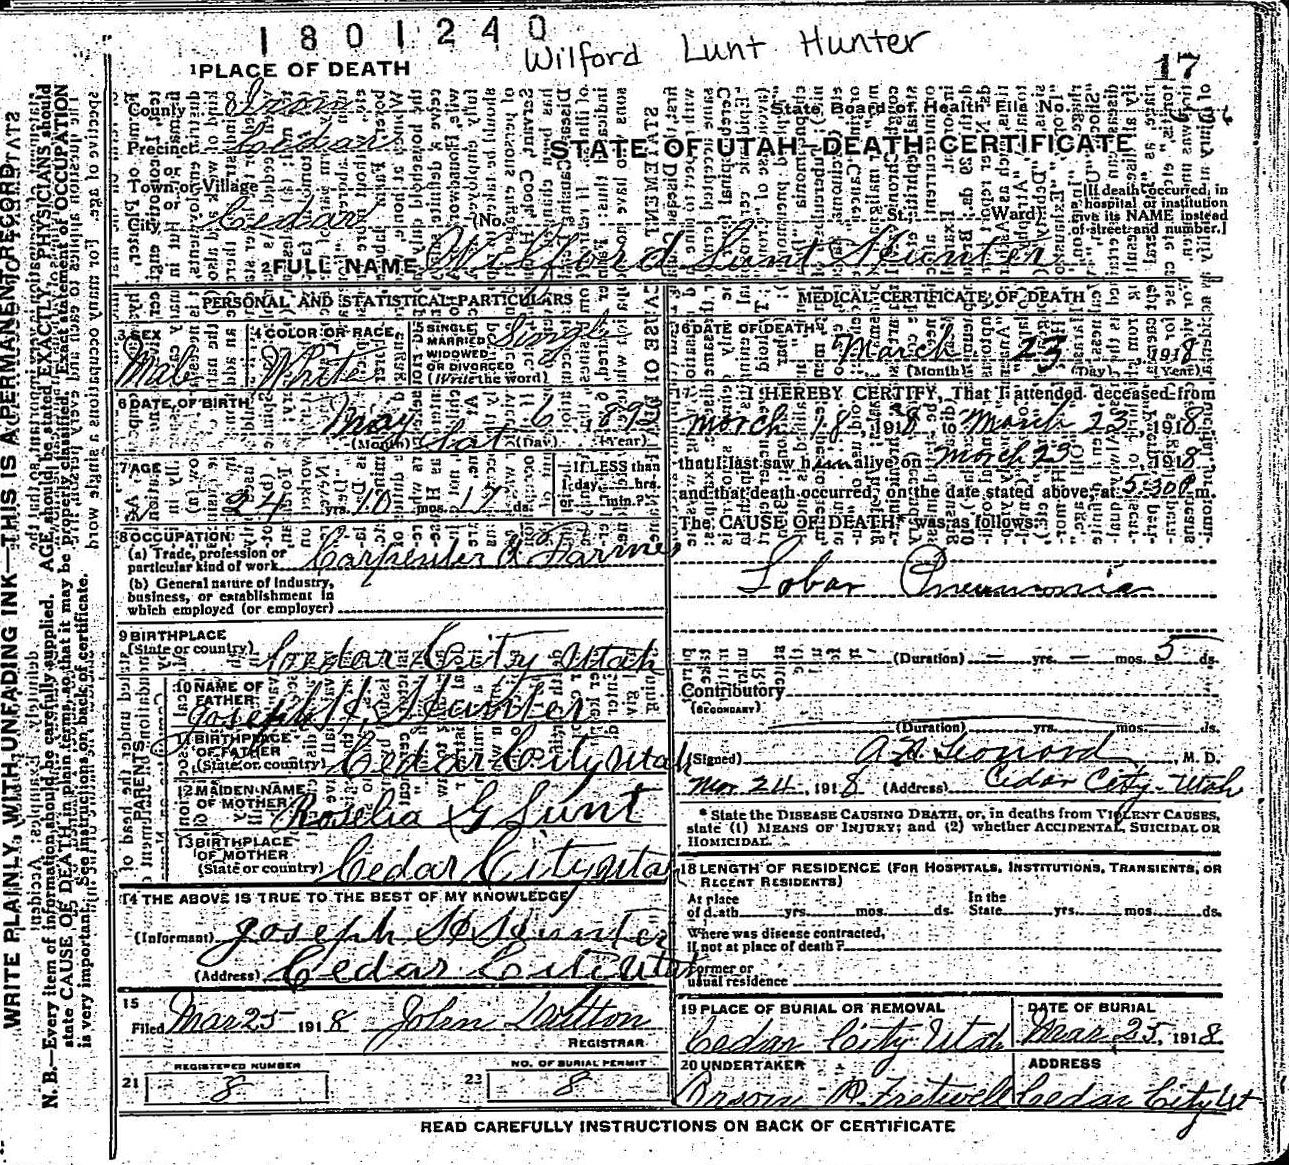 1801240
Wilford Lunt Hunter
17
1 PLACE OF DEATH
County Iron
Precinct Cedar
State Board of Health File No.
STATE OF UTAH—DEATH CERTIFICATE
Town or Village
City Cedar (No. St. Ward)
[If death occurred in hospital or institution give its NAME instead of street and number.]
FULL NAME Wilford Lunt Hunter
PERSONAL AND STATISTICAL PARTICULARS
3 SEX Male
4 COLOR OR RACE White
SINGLE MARRIED WIDOWED OR DIVORCED (Write the word) Single
6 DATE OF BIRTH May 6 1893
(Month) (Day) (Year)
Sat
7 AGE 24 yrs. 10 mos. 17 ds.
If LESS than 1 day, hrs. min.?
8 OCCUPATION
(a) Trade, profession or particular kind of work Carpenter & Farmer
(b) General nature of industry, business, or establishment in which employed (or employer)
9 BIRTHPLACE (State or country) Cedar City Utah
PARENTS
10 NAME OF FATHER Joseph H. Hunter
11 BIRTHPLACE OF FATHER (State or country) Cedar City Utah
12 MAIDEN NAME OF MOTHER Roselia G Lunt
13 BIRTHPLACE OF MOTHER (State or country) Cedar City Utah
14 THE ABOVE IS TRUE TO THE BEST OF MY KNOWLEDGE
(Informant) Joseph H Hunter
(Address) Cedar City Utah
15
Filed Mar 25 1918 John
REGISTRAR
REGISTERED NUMBER
NO. OF BURIAL PERMIT
21 8
22 8
MEDICAL CERTIFICATE OF DEATH
16 DATE OF DEATH March 23, 1918
(Month) (Day) (Year)
17 I HEREBY CERTIFY, That I attended deceased from
March 18 1918 to March 23, 1918
that I last saw him alive on March 23 1918
and that death occurred, on the date stated above, at 5:30 P m.
The CAUSE OF DEATH* was as follows:
Lobar Pneumonia
(Duration) — yrs. — mos. 5 ds.
Contributory
(SECONDARY)
(Duration) yrs. mos. ds.
(Signed) A. N. Leonard, M. D.
Mar. 24, 1918 (Address) Cedar City - Utah
* State the DISEASE CAUSING DEATH, or, in deaths from VIOLENT CAUSES,
state (1) MEANS OF INJURY; and (2) whether ACCIDENTAL, SUICIDAL OR
HOMICIDAL.
18 LENGTH OF RESIDENCE (FOR HOSPITALS, INSTITUTIONS, TRANSIENTS, OR
RECENT RESIDENTS)
At place of death yrs. mos. ds. In the State yrs. mos. ds.
Where was disease contracted, if not at place of death?
Former or usual residence
19 PLACE OF BURIAL OR REMOVAL Cedar City Utah
DATE OF BURIAL Mar. 25, 1918
20 UNDERTAKER Orson P. Fretwell
ADDRESS Cedar City Ut
READ CAREFULLY INSTRUCTIONS ON BACK OF CERTIFICATE
WRITE PLAINLY, WITH UNFADING INK—THIS IS A PERMANENT RECORD
N. B.—Every item of information should be carefully supplied. AGE should be stated EXACTLY. PHYSICIANS should
state CAUSE OF DEATH in plain terms, so that it may be properly classified. Exact statement of OCCUPATION
is very important. See instructions on back of certificate.